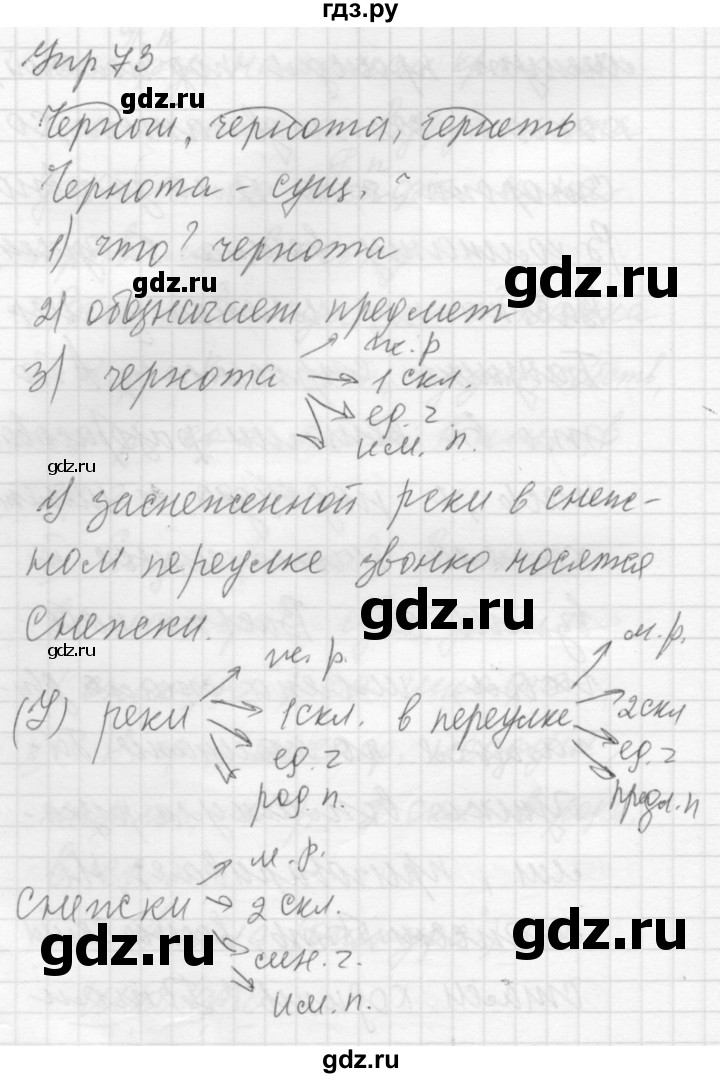 гдз.ру
Упр 73
gdz.ru
Черный, чернота, чернеть
Чернота - сущ.
1) что? чернота
gdz.ru
gdz.ru
2) обозначает предмет
3) чернота
ж. р
1 скл.
ед. ч.
им. п.
gdz.ru
У заснеженной реки в снеж-
ном переулке звонко носятся
gdz.ru
Снежски.
gdz.ru
(У) реки
ж. р.
1 скл.
ед. ч
род. п.
в переулке
м. р.
2 скл
ед. ч
предл. п
Снежски
м. р.
2 скл.
мн. ч.
им. п.
gdz.ru
gdz.ru
gdz.ru